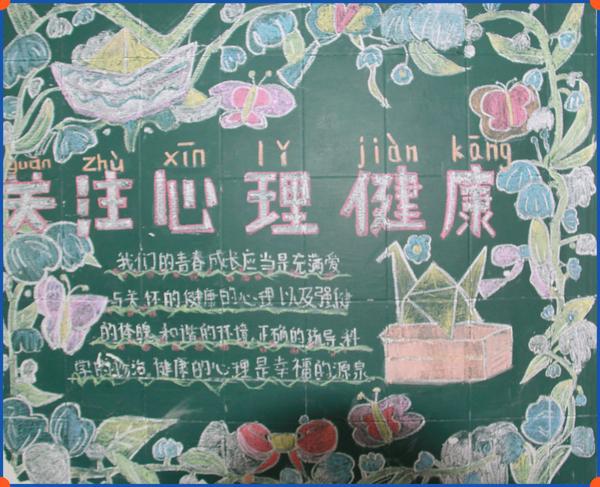 guān zhù xīn lǐ jiàn kāng
关注心理健康
我们的青春成长应当是充满爱
与关怀的健康的心理以及强健
的体魄和谐的环境正确的指导科
学的防治健康的心理是幸福的源泉